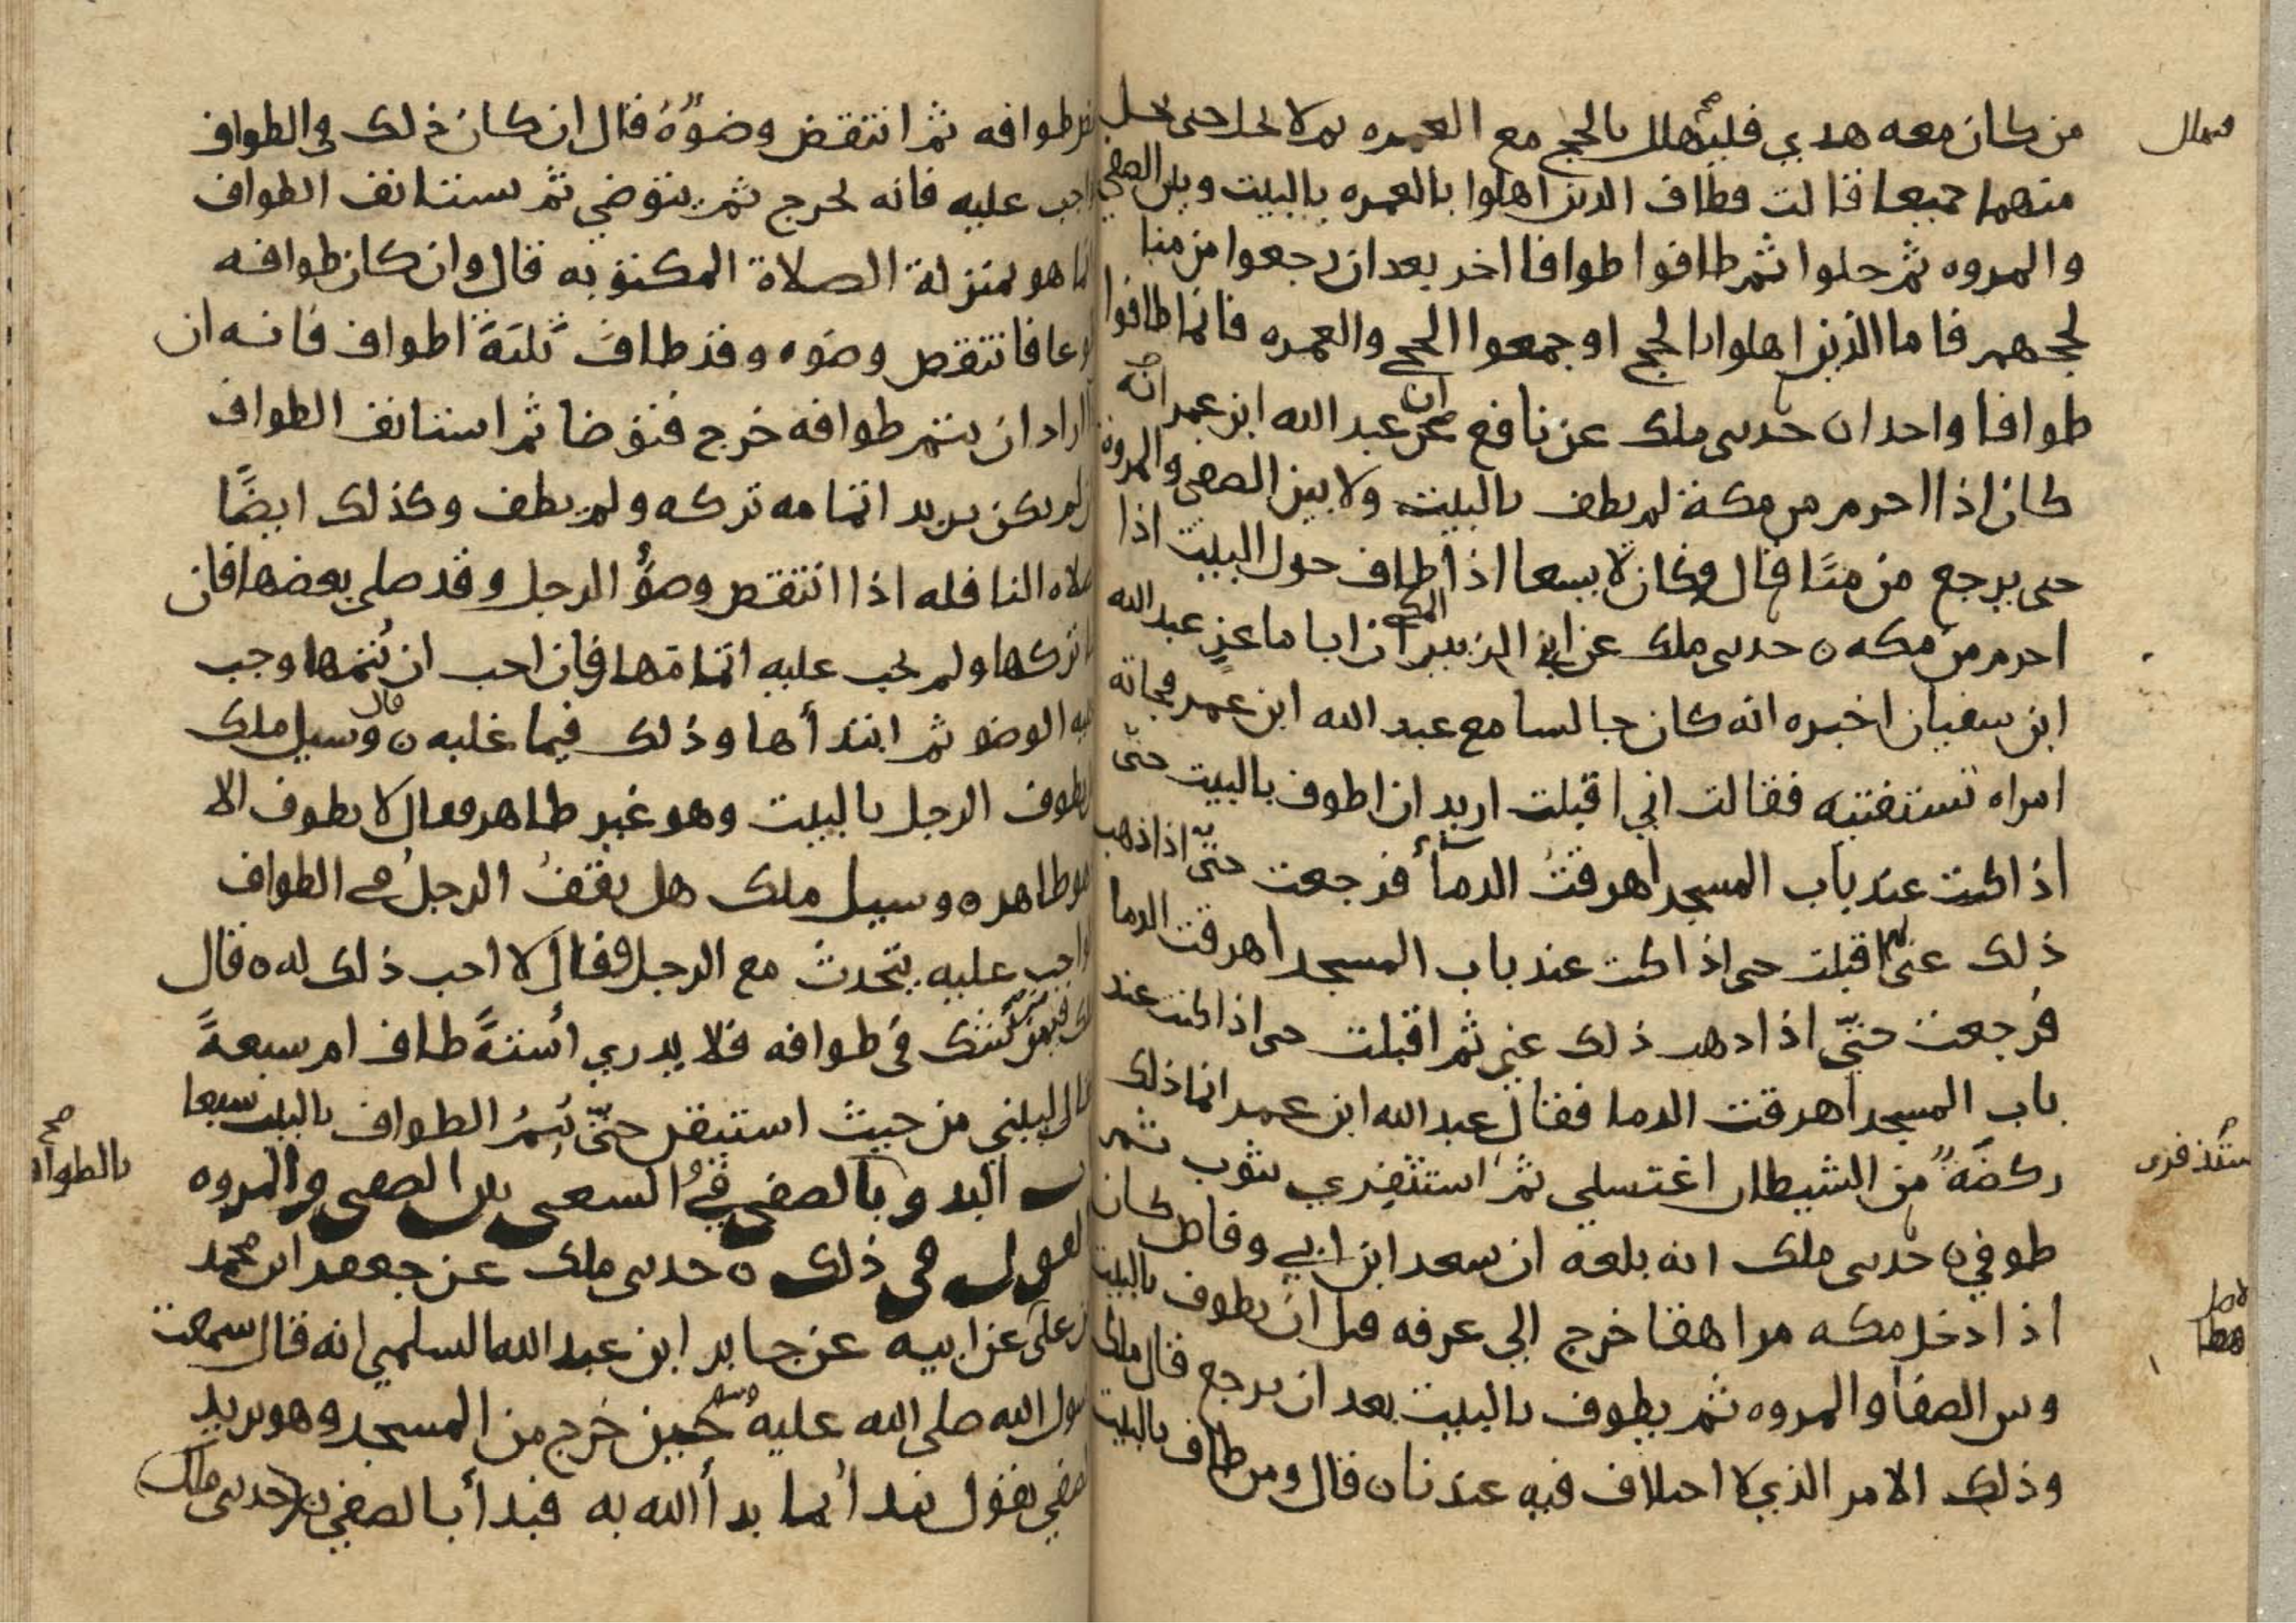 من كان معه هدي فليهلل بالحج مع العمره ثم لا يحل حتى يحل
فيهلل
منهما جميعا قالت فطاف الدين اهلوا بالعمره بالبيت وبين الصفى
والمروه ثم حلوا ثم طافوا طوافا اخر بعد ان رجعوا من منا
لحجهم فاما الذين اهلوا بالحج او جمعوا الحج والعمره فانما طافوا
طوافا واحدا ن حدثني ملك عن نافع ان عبد الله ابن عمر انه
كان اذا احرم من مكة لم يطف بالبيت ولا بين الصفى والمروة
حتى يرجع من منًا قال وكان لا يسعا اذا طاف حول البيت اذا
احرم من مكه ن حدثني ملك عن ابي الزبير المكي ان ابا ماعز عبد الله
ابن سفيان اخبره انه كان جالسا مع عبد الله ابن عمر فجاته
امراه تستفتيه فقالت اني اقبلت اريد ان اطوف بالبيت حتى
اذا كنت عند باب المسجد اهرقتُ الدمآ فرجعت حتى اذا ذهب
ذلك عني ثم اقبلت حتى اذا كنت عند باب المسجد اهرقت الدما
فرجعت حتّي اذا ذهب ذلك عني ثم اقبلت حتى اذا كنت عند
باب المسجد اهرقت الدما فقال عبد الله ابن عمر انما ذلك
ركضة من الشيطان اغتسلي ثم استثفري بثوب ثم
ستذفرى
طوفي ن حدثني ملك انه بلغه ان سعد ابن ابي وقاص كان
اذا دخل مكه مراهقا خرج الي عرفه قبل ان يطوف بالبيت
وبين الصفا والمروه ثم يطوف بالبيت بعد ان يرجع قال ملك
وذلك الامر الذي لا اختلاف فيه عندنا ن قال ومن طاف بالبيت
طوافه ثم انتقض وضوُه قال ان كان ذلك في الطواف
واجب عليه فانه يخرج ثم يتوضي ثم يستانف الطواف
انما هو بمنزلة الصلاة المكتوبه قال وان كان طوافه
تطوعا فانتقص وضوه وقد طاف ثلثة اطواف فانه ان
اراد ان يتم طوافه خرج فتوضا ثم استانف الطواف
وان لم يكن يريد اتمامه تركه ولم يطف وكذلك ايضًا
صلاه النافله اذا انتقص وضوُّ الرجل وقد صلي بعضها فان
تركها ولم يجب عليه اتمامها فان احب ان يُتمها وجب
عليه الوضو ثم ابتدأها وذلك فيما غلبه ن قال وسيل ملك
ايطوف الرجل بالبيت وهو غير طاهر فقال لا يطوف الا
وهو طاهر ن وسيل ملك هل يقف الرجل في الطواف
واجب عليه يتحدث مع الرجل فقال لا احب ذلك له ن قال
ملك فيمن شك في طوافه فلا يدري أستةً طاف ام سبعةً
قال ليبني من حيث استيقن حتّى يُتمُ الطواف بالبيت سبعا
باب البدو بالصفى في السعى بين الصفى والمروه
بالطواف
القول في ذلك ن حدثني ملك عن جعفر ابن محمد
بن علي عن ابيه عن جابر ابن عبد الله السلمي انه قال سمعت
رسول الله صلى الله عليه وسلم حين خرج من المسجد وهو يريد
الصفي يقول نبدأ بما بدأ الله به فبدأ بالصفي ن حدثني ملك